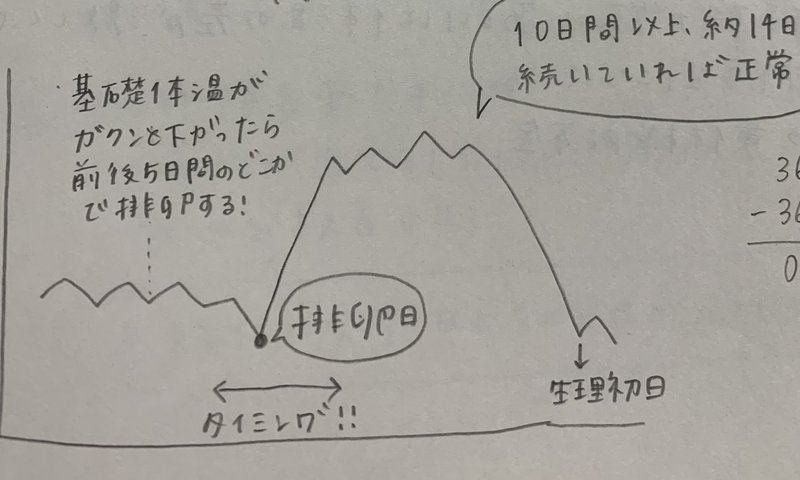 10日間以上、約14日
続いていれば正常
基礎体温が
ガクンと下がったら
前後5日間のどこか
で排卵する!
36
-36
0
排卵日
タイミング!!
生理初日